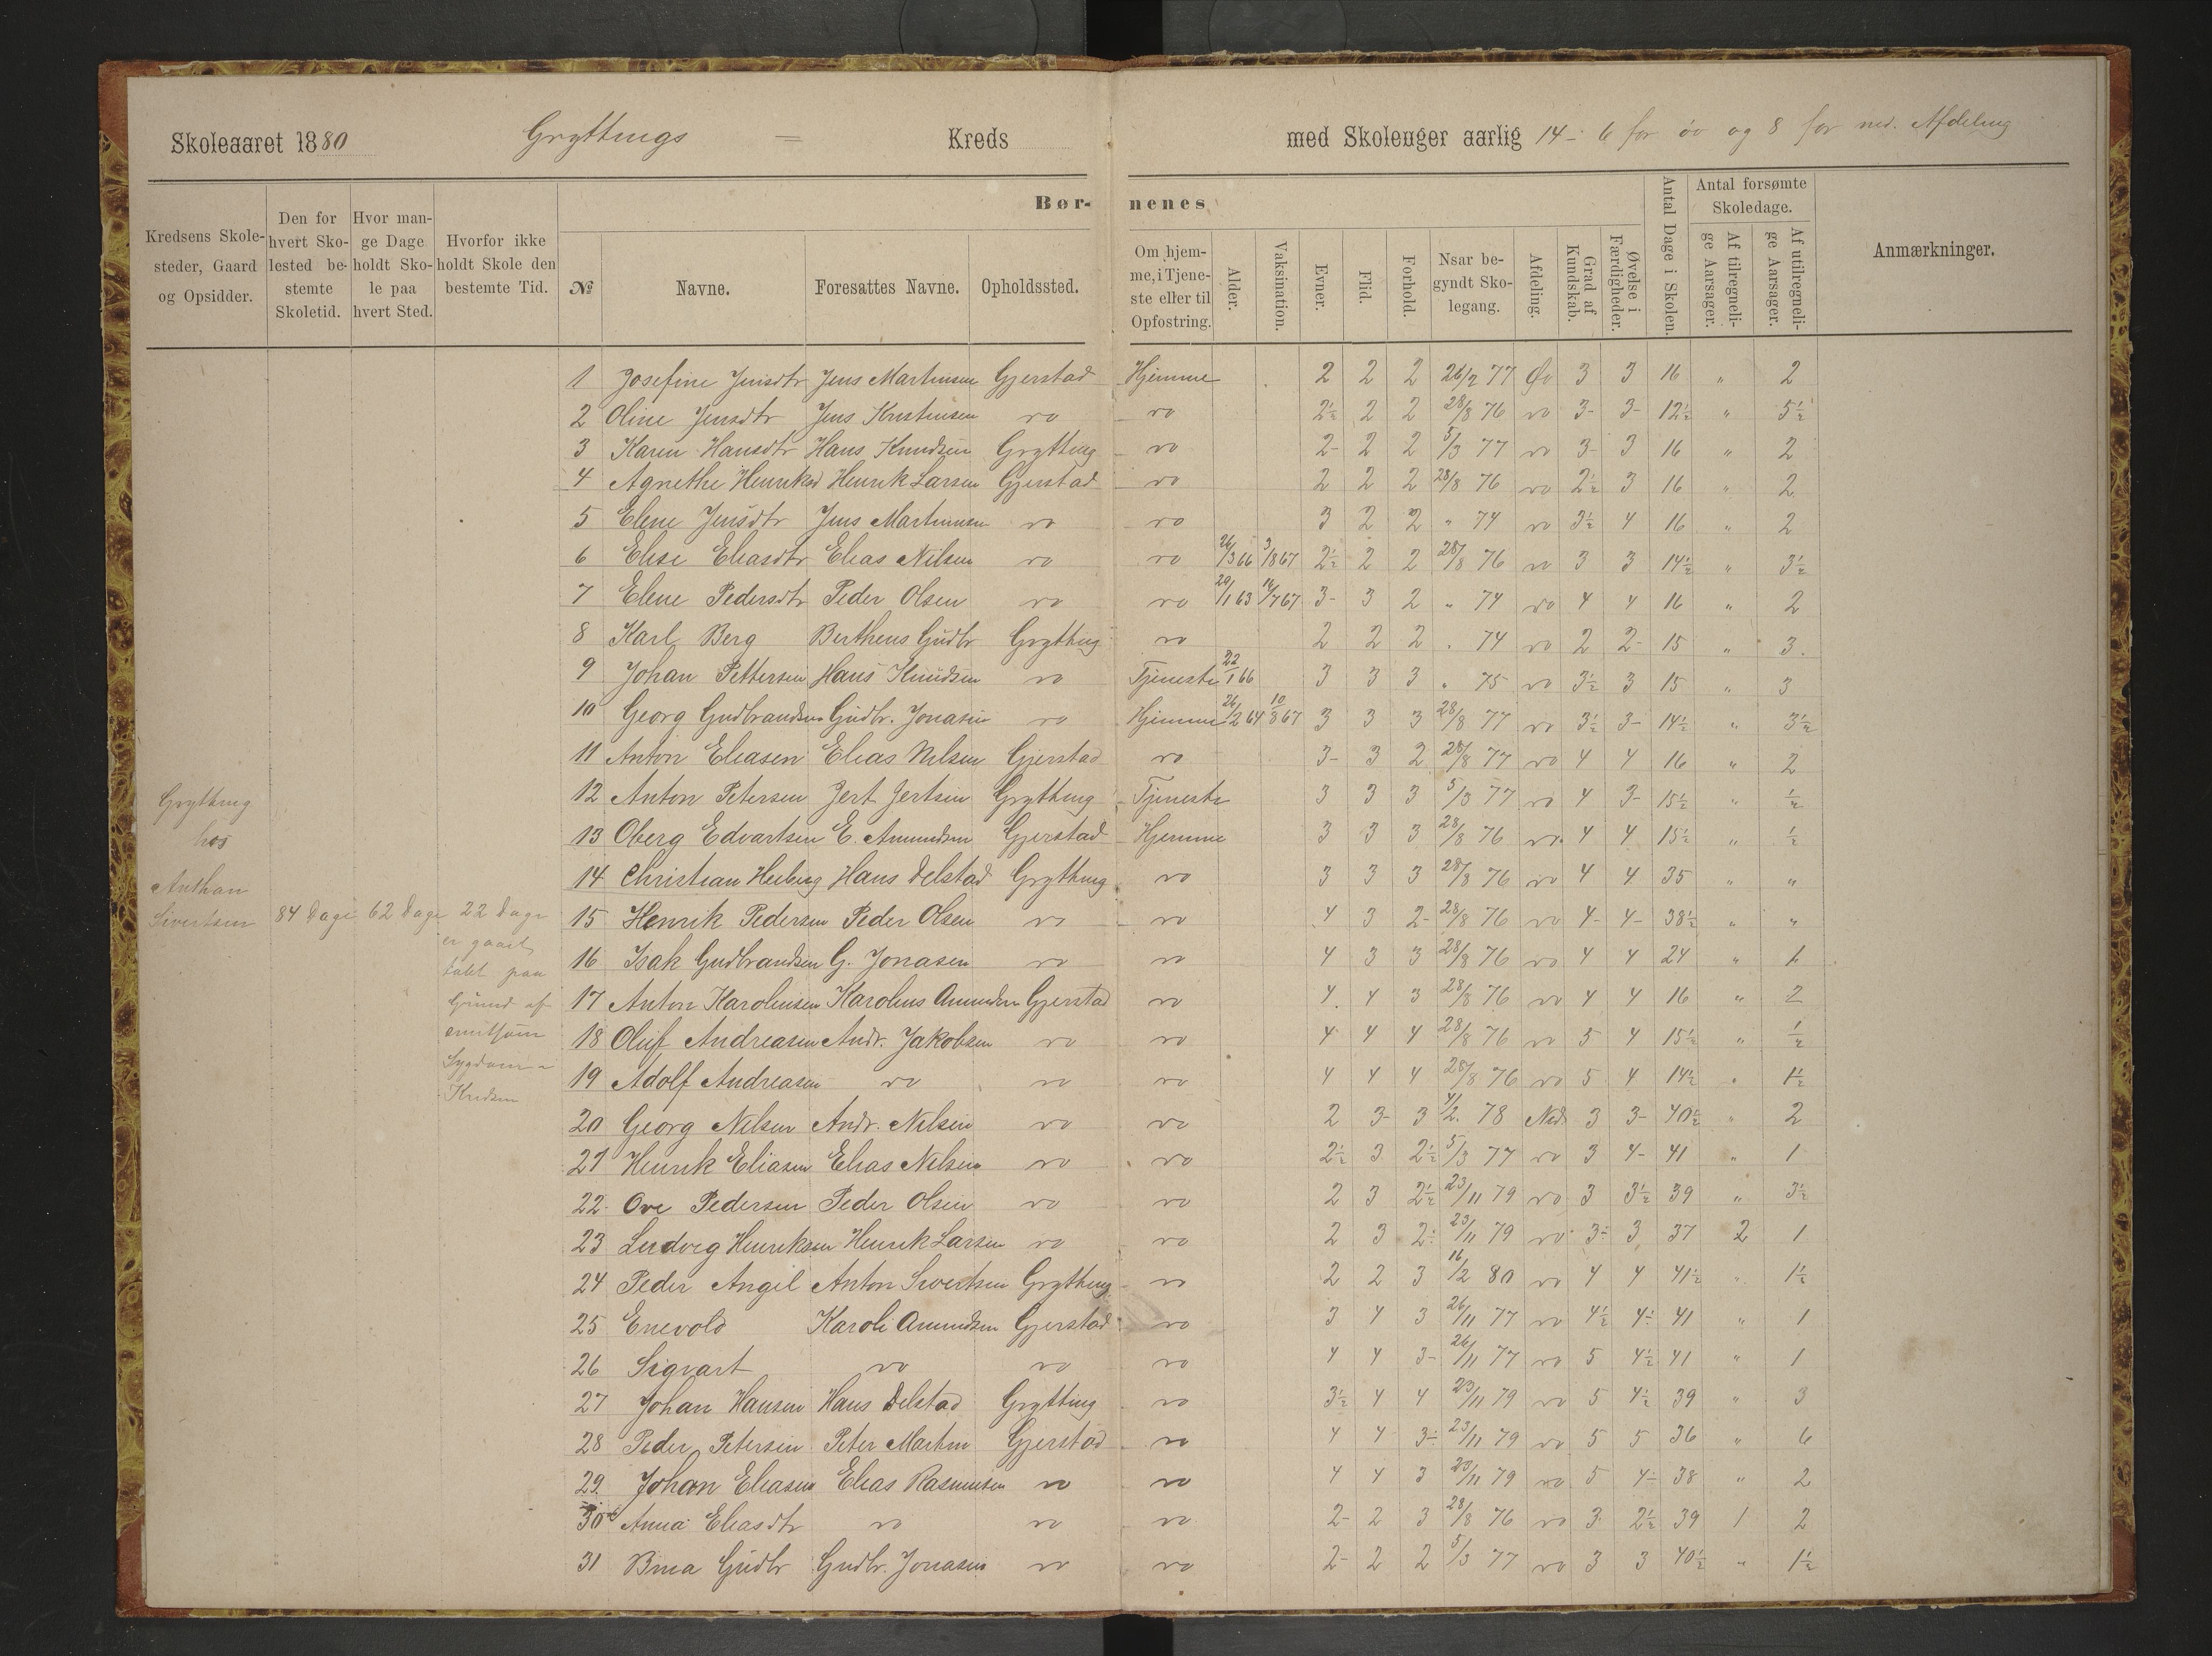 Skoleaaret 1880 Gryttings = Kreds med Skoleuger aarlig 14 - 6 for öv og 8 for ned. Afdeling
Kredsens Skolesteder, Gaard og Opsidder.
Den for hvert Skolested bestemte Skoletid.
Hvor mange Dage holdt Skole paa hvert Sted.
Hvorfor ikke holdt Skole den bestemte Tid.
Børnenes
№
Navne.
Foresattes Navne.
Opholdssted.
Om hjemme, i Tjeneste eller til Opfostring.
Alder.
Vaksination.
Evner.
Flid.
Forhold.
Naar begyndt Skolegang.
Afdeling.
Grad af Kundskab.
Øvelse i Færdigheder.
Antal Dage i Skolen.
Antal forsømte Skoledage.
Af tilregnelige Aarsager.
Af utilregnelige Aarsager.
Anmærkninger.
Grytting
hos
Anthon
Sivertsen 84 Dage 62 Dage 22 Dage
er gaaet
tabt paa
Grund af
smitsom
Sygdom i
Kredsen
1 Josefine Jensdtr Jens Martinsen Gjerstad Hjemme 2 2 2 26/2 77 Øv 3 3 16 " 2
2 Oline Jensdtr Jens Kristensen vo vo 2½ 2 2 28/8 76 vo 3- 3- 12½ " 5½
3 Karen Hansdtr Hans Knudsen Grytting vo 2- 2 2 5/3 77 vo 3- 3 16 " 2
4 Agnethe Henriksd Henrik Larsen Gjerstad vo 2 2 2 28/8 76 vo 2½ 3 16 " 2
5 Elene Jensdtr Jens Martinsen vo vo 3 2 2 " 74 vo 3½ 4 16 " 2
6 Elise Eliasdtr Elias Nilsen vo vo 26/3 66 3/8 67 2½ 2 2 28/8 76 vo 3 3 14½ " 3½
7 Elene Pedersdtr Peder Olsen vo vo 29/1 63 14/7 67 3- 3 2 " 74 vo 4 4 16 " 2
8 Karl Berg Bertheus Gudbr Grytting vo 2 2 2 " 74 vo 2 2- 15 " 3.
9 Johan Pettersen Hans Knudsen vo Tjeneste 22/1 66 3 3 3 " 75 vo 3½ 3 15 " 3
10 Georg Gudbrandsen Gudbr. Jonasen vo Hjemme 26/2 64 10/8 67 3 3 3 28/8 77 vo 3½ 3- 14½ " 3½
11 Anton Eliasen Elias Nilsen Gjerstad vo 3- 3 2 28/8 77 vo 4 4 16 " 2
12 Anton Petersen Jert Jertsen Grytting Tjeneste 3 3 3 5/3 77 vo 4 3- 15½ " ½
13 Oberg Edvartsen E. Amundsen Gjerstad Hjemme 3 3 3 28/8 76 vo 4 4 15½ " ½
14 Christian Heiberg Hans Delstad Grytting vo 3 3 3 28/8 76 vo 4 4 35 " "
15 Henrik Pedersen Peder Olsen vo vo 4 3 2- 28/8 76 vo 4- 4- 38½ " "
16 Isak Gudbrandsen G. Jonasen vo vo 4 3 3 28/8 76 vo 4 4 24 " 1
17 Anton Karolinsen Karolius Amundsen Gjerstad vo 4 4 3 28/8 76 vo 4 4 16 " 2
18 Oluf Andreasen Andr. Jakobsen vo vo 4 4 4 28/8 76 vo 5 4 15½ " ½
19 Adolf Andreasen vo vo vo 4 4 4 28/8 76 vo 5 4 14½ " 1½
20 Georg Nilsen Andr. Nilsen vo vo 2 3- 3 4/2 78 Ned. 3 3- 40½ " 2
21 Henrik Eliasen Elias Nilsen vo vo 2½ 3 2½ 5/3 77 vo 3 4- 41 " 1
22 Ove Pedersen Peder Olsen vo vo 2 3 2½ 23/11 79 vo 3 3½ 39 " 3½
23 Ludvig Henriksen Henrik Larsen vo vo 2 3 2½ 23/11 79 vo 3½ 3 37 2 1
24 Peder Angel Anton Sivertsen Grytting vo 2 2 3 16/2 80 vo 4 4 41½ " 1½
25 Enevold Karoli Amundsen Gjerstad vo 3 4 3 26/11 77 vo 4½ 4½ 41 " 1
26 Sigvart vo vo vo 4 4 3- 26/11 77 vo 5 4½ 41 " 1
27 Johan Hansen Hans Delstad Grytting vo 3½ 4 4 23/11 79 vo 5 4½ 39 " 3
28 Peder Petersen Peter Martin Gjerstad vo 4 4 3½ 23/11 79 vo 5 5 36 " 6
29 Johan Eliasen Elias Rasmusen vo vo 4 4 3 23/11 79 vo 5 4½ 38 " 2
30 Anna Eliasdtr vo vo vo 2- 2 3 28/8 76 vo 3 2½ 39 1 2
31 Bina Gudbr Gudbr. Jonasen vo vo 2- 2 2 5/3 77 vo 3 3 40½ " 1½